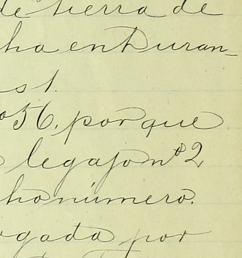 de tierra de
ha en Duran-
st.
o 56, porque
legajo nº 2
ho número.
ogada por